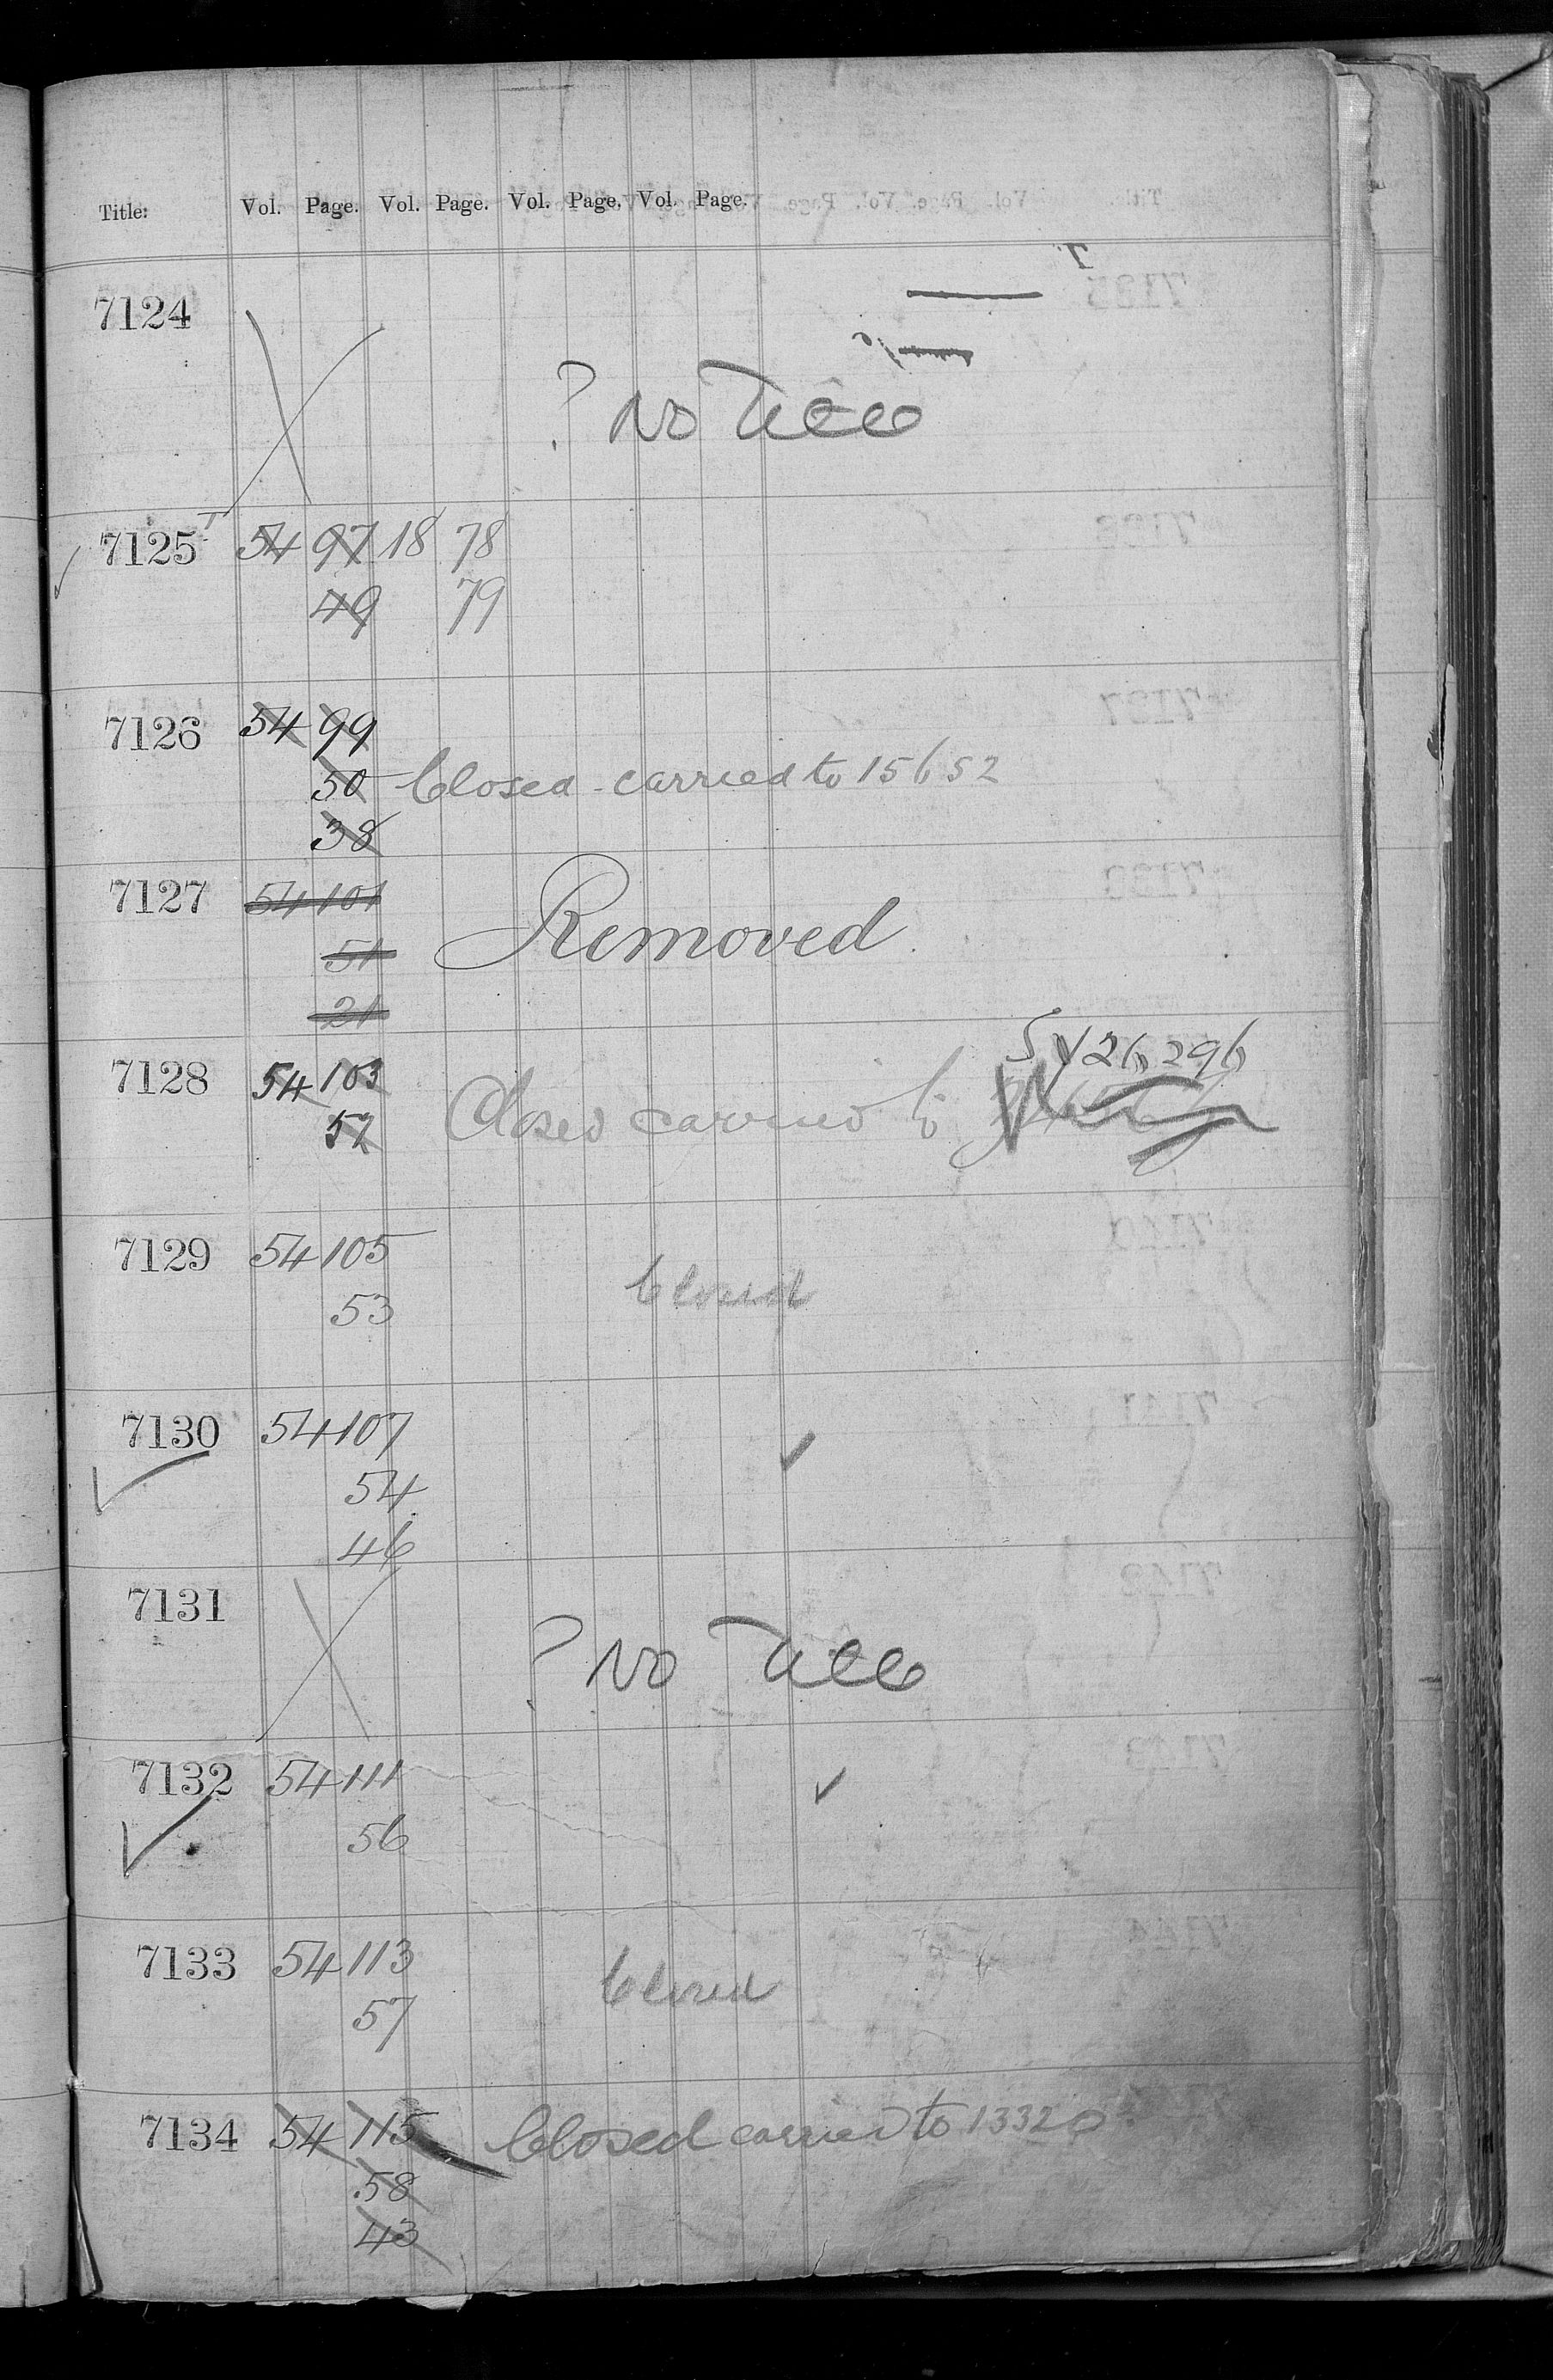 Title: Vol. Page. Vol. Page. Vol. Page. Vol. Page.
7124
? No Title
7125 54 97 18 78
49 79
7126 54 99
50 Closed - carried to 15652
38
7127 54 101
51 Removed
21
7128 54 103 26296
52 Closed carried to
7129 54 105
53 Closed
7130 54 107
54
46
7131
? No Title
7132 54 111
56
7133 54 113
57 Closed
7134 54 115 Closed carried to 13320
58
43